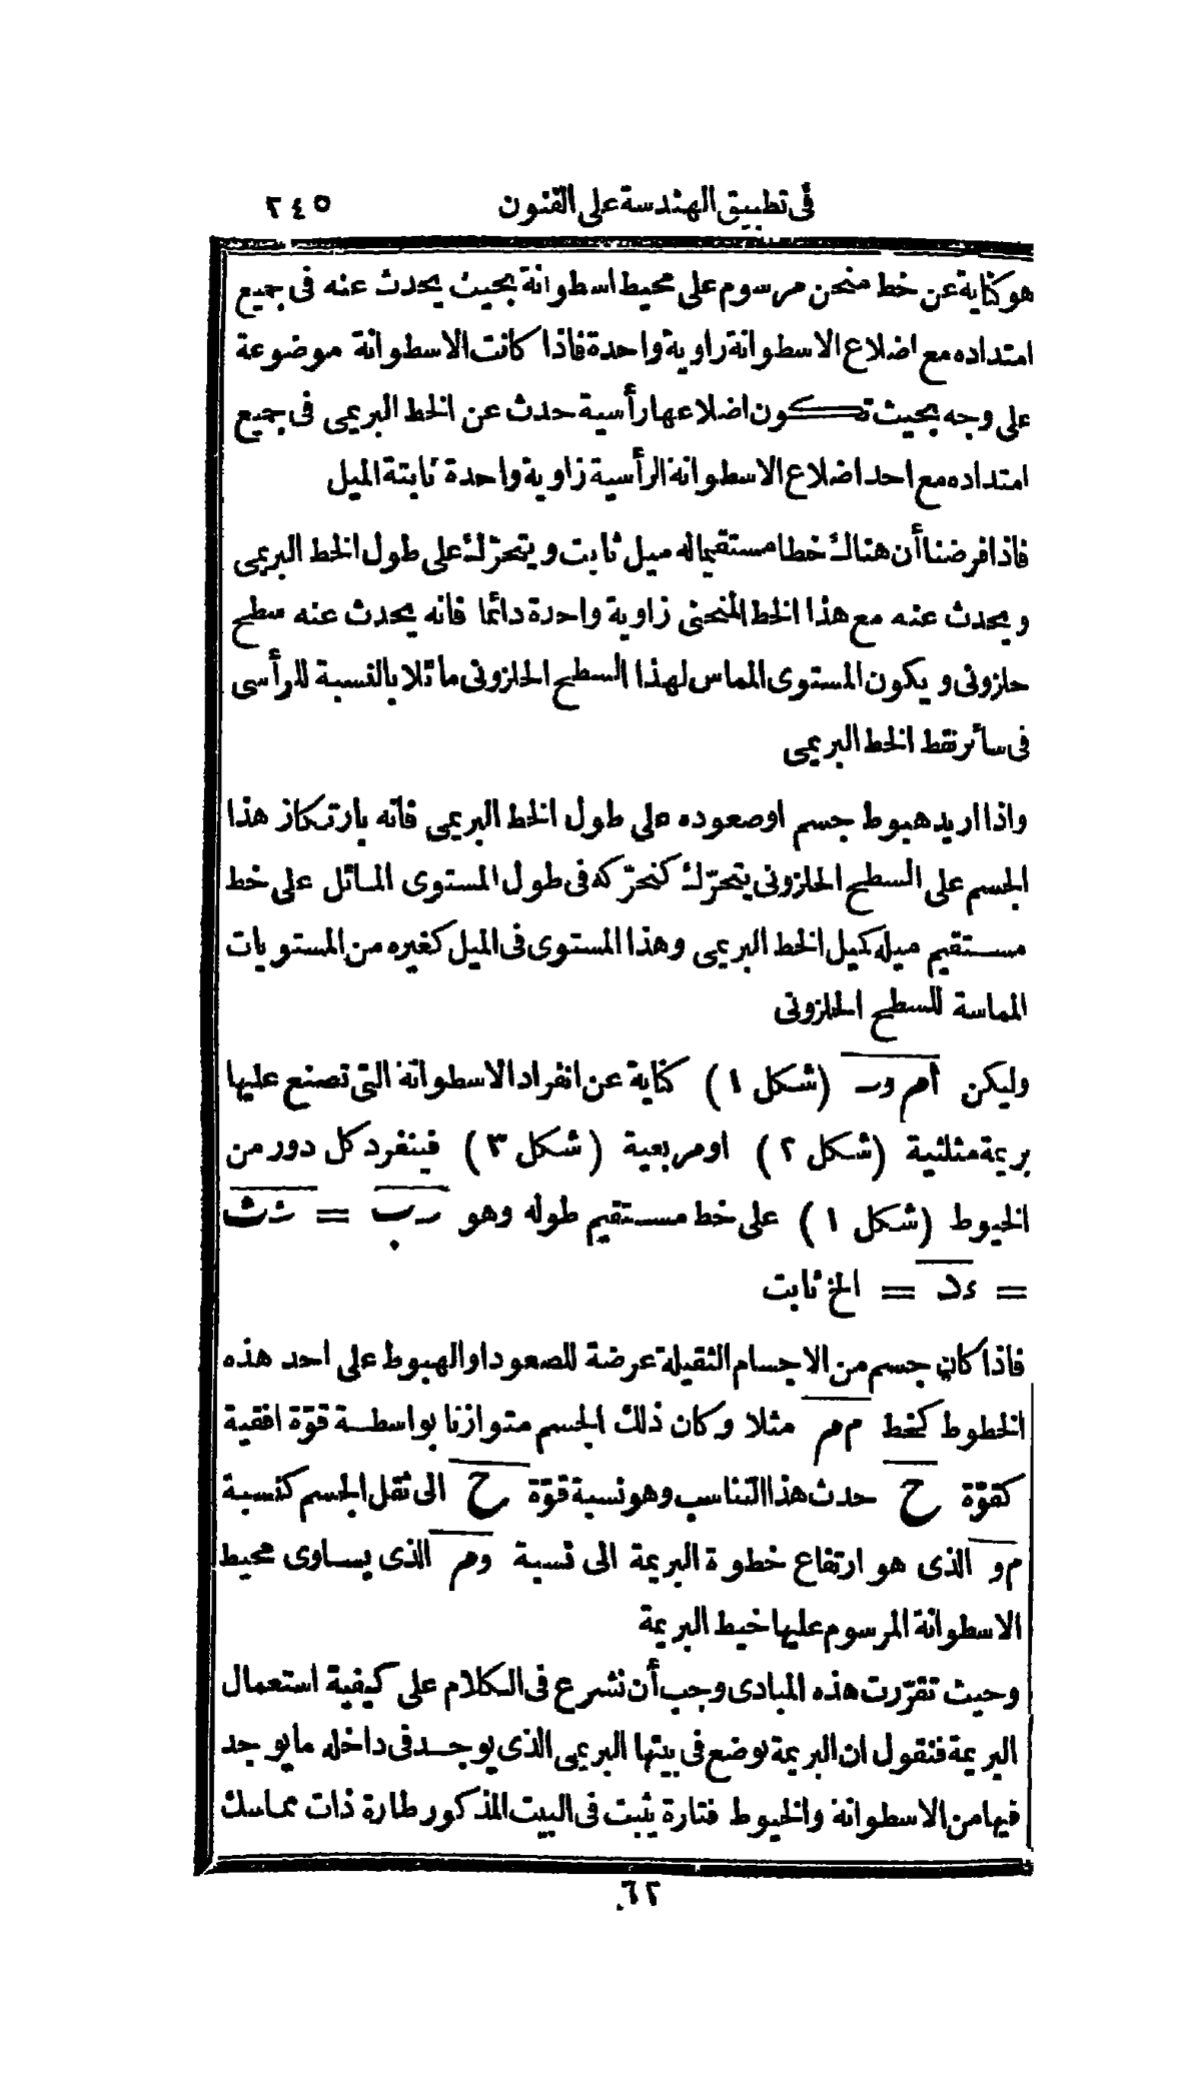 فى تطبيق الهندسة على الفنون ٢٤٥
هو كناية عن خط منحن مرسوم على محيط اسطوانة بحيث يحدث عنه فى جميع
امتداده مع اضلاع الاسطوانة زاوية واحدة فاذا كانت الاسطوانة موضوعة
على وجه بحيث تكون اضلاعها رأسية حدث عن الخط البريمى فى جميع
امتداده مع احد اضلاع الاسطوانة الرأسية زاوية واحدة ثابتة الميل
فاذا فرضنا أن هناك خطا مستقيما له ميل ثابت ويتحرّك على طول الخط البريمى
ويحدث عنه مع هذا الخط المنحنى زاوية واحدة دائما فانه يحدث عنه سطح
حلزونى ويكون المستوى المماس لهذا السطح الحلزونى مائلا بالنسبة للرأسى
فى سائر نقط الخط البريمى
واذا اريد هبوط جسم او صعوده على طول الخط البريمى فانه بارتكاز هذا
الجسم على السطح الحلزونى يتحرّك كتحرّكه فى طول المستوى المائل على خط
مستقيم ميله كميل الخط البريمى وهذا المستوى فى الميل كغيره من المستويات
المماسة للسطح الحلزونى
وليكن أم ور (شكل ١) كناية عن انفراد الاسطوانة التى تصنع عليها
بريمة مثلثية (شكل ٢) او مربعية (شكل ٣) فينفرد كل دور من
الخيوط (شكل ١) على خط مستقيم طوله وهو رب = ثث
= ءد = الخ ثابت
فاذا كان جسم من الاجسام الثقيلة عرضة للصعود او الهبوط على احد هذه
الخطوط كخط م مر مثلا وكان ذلك الجسم متوازنا بواسطة قوّة افقية
كقوّة ح حدث هذا التناسب وهو نسبة قوّة ح الى ثقل الجسم كنسبة
م و الذى هو ارتفاع خطوة البريمة الى نسبة ومر الذى يساوى محيط
الاسطوانة المرسوم عليها خيط البريمة
وحيث تقرّرت هذه المبادى وجب أن نشرع فى الكلام على كيفية استعمال
البريمة فنقول ان البريمة توضع فى بيتها البريمى الذى يوجد فى داخله ما يوجد
فيها من الاسطوانة والخيوط فتارة يثبت فى البيت المذكور طارة ذات مماسك
٦٢